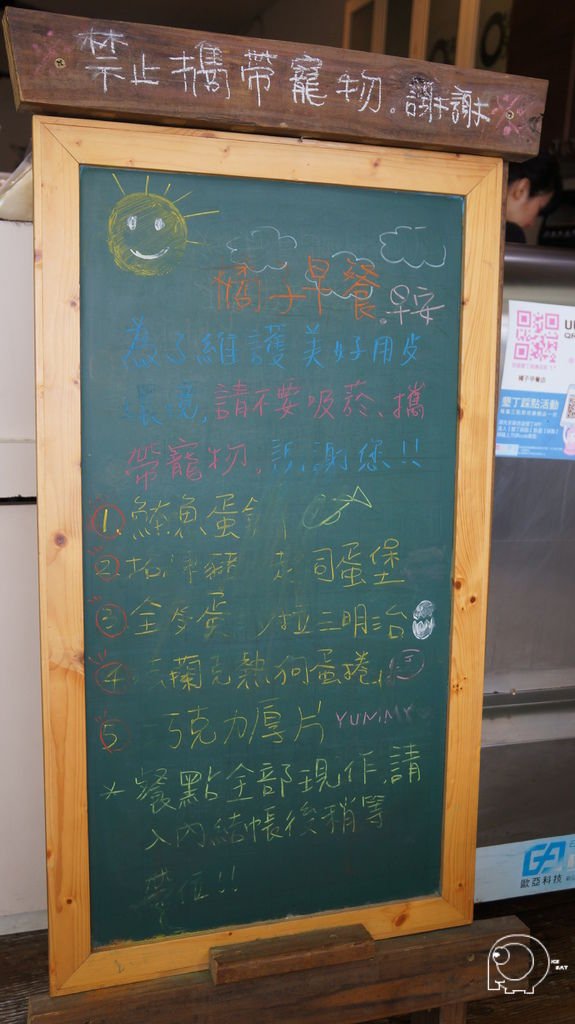 禁止攜帶寵物。謝謝
橘子早餐。早安
為了維護美好用皮
環境,請不要吸菸、攜
帶寵物。謝謝您!!
1. 鮪魚蛋
2. 起司蛋堡
3 全麥蛋 拉三明治
4 法蘭克熱狗蛋捲
5 巧克力厚片 YUMMY
* 餐點全部現作,請
入內結帳後稍等
帶位!!
橘子早餐店
墾丁踩點活動
歐亞科技